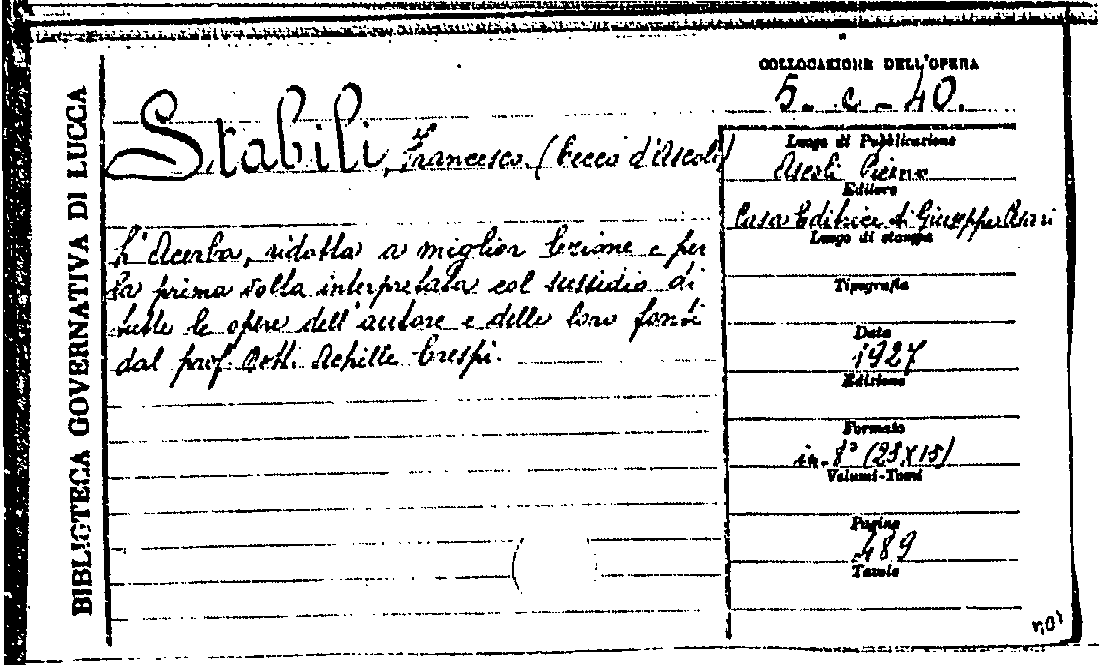 BIBLIOTECA GOVERNATIVA DI LUCCA
COLLOCAZIONE DELL'OPERA
5. c. 40.
Stabili, Francesco. (Cecco d'Ascoli)
L'Acerba, ridotta a miglior lezione e per
la prima volta interpretata col sussidio di
tutte le opere dell'autore e delle loro fonti
dal prof. Dott. Achille Crespi.
Luogo di Pubblicazione
Ascoli Piceno
Editore
Casa Editrice di Giuseppe Cesari
Luogo di stampa
Tipografia
Data
1927
Edizione
Formato
in. 8° (23 X 15)
Volumi-Tomi
Pagine
489
Tavole